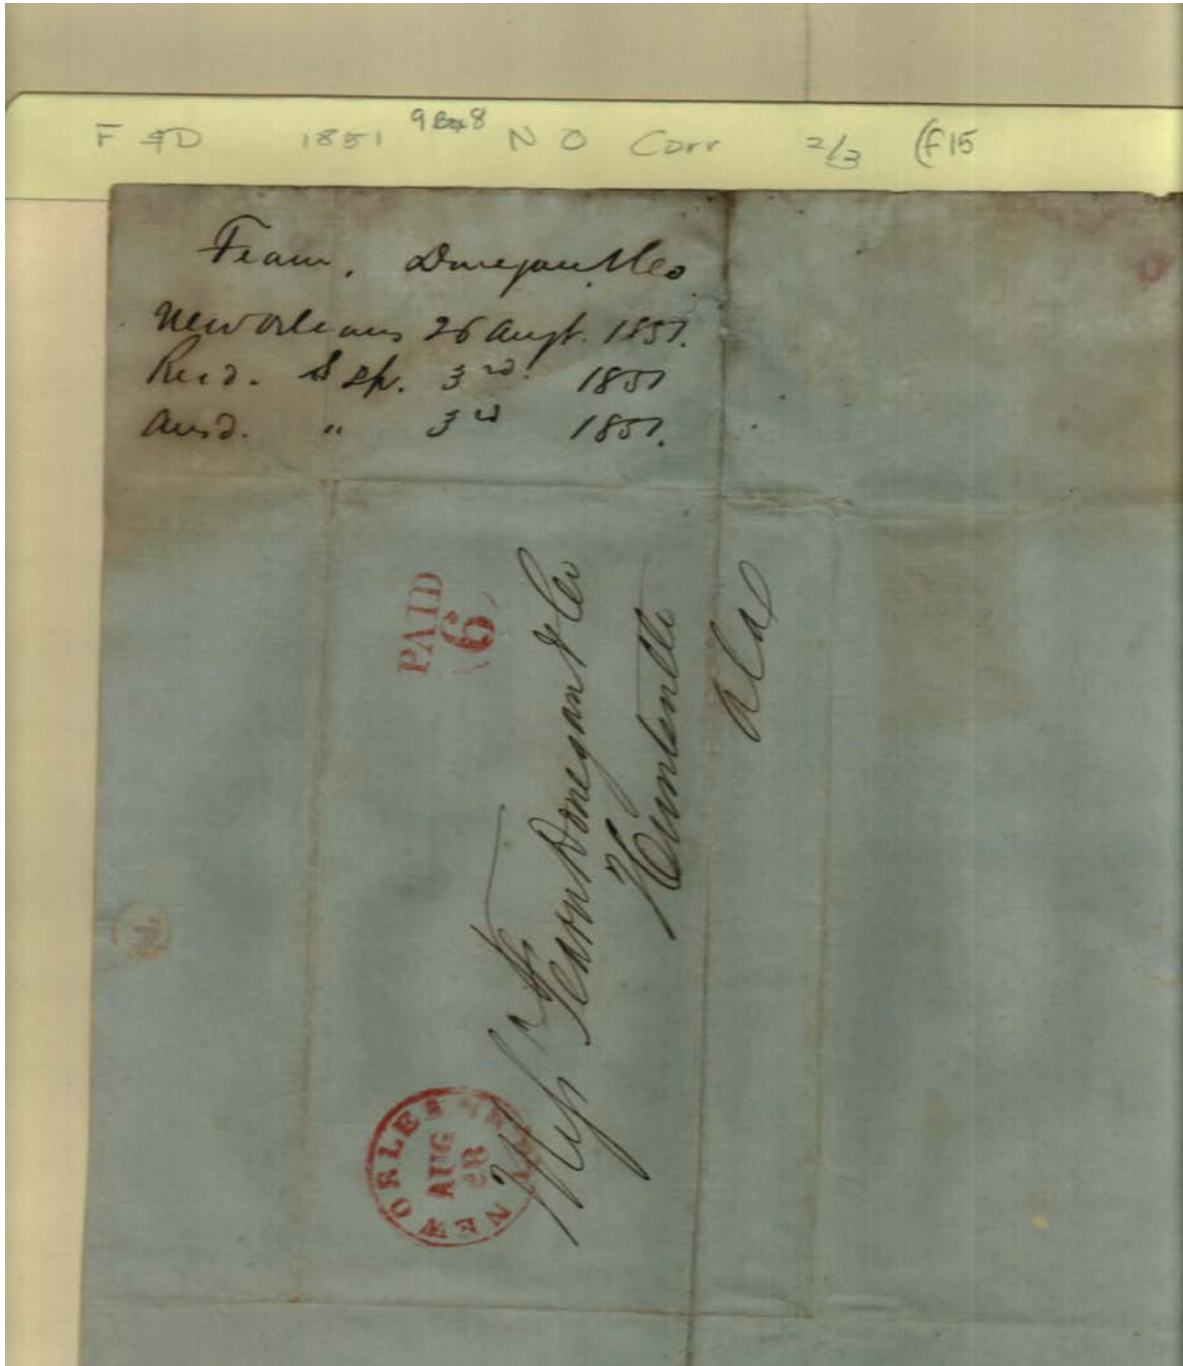 F & D 1851 9 Box 8 N O Corr 2/3 (f 15
Fearn, Donegan & Co
New Orleans 26 Augt. 1851.
Recd. Sep. 3rd. 1851
Ansd. " 3rd 1851.
PAID
6
Messrs Fearn Donegan & Co
Huntsville
Ala
NEW ORLEANS
AUG
28